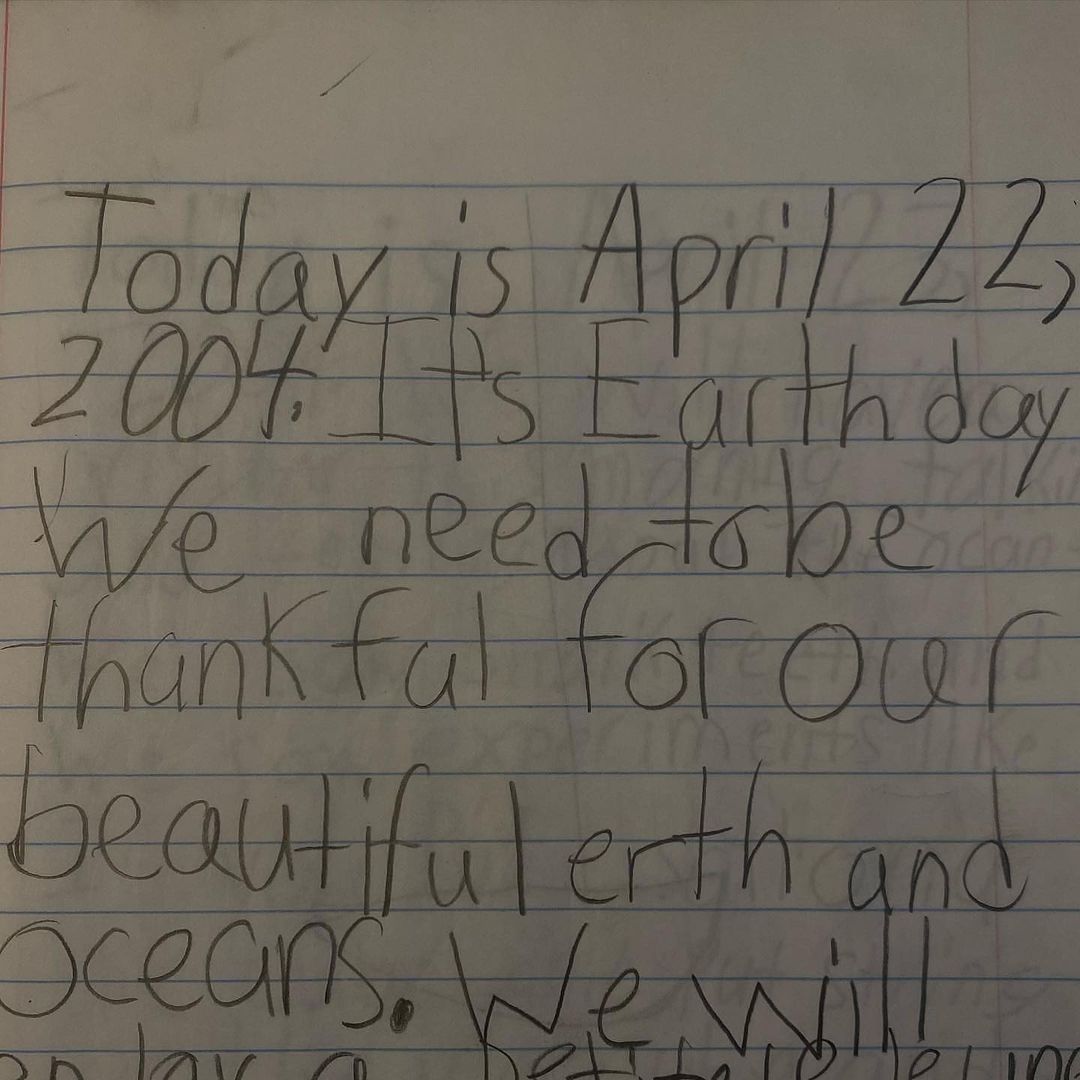 Today is April 22,
2004. It's Earth day
We need to be
thankful for our
beautiful erth and
oceans. We will